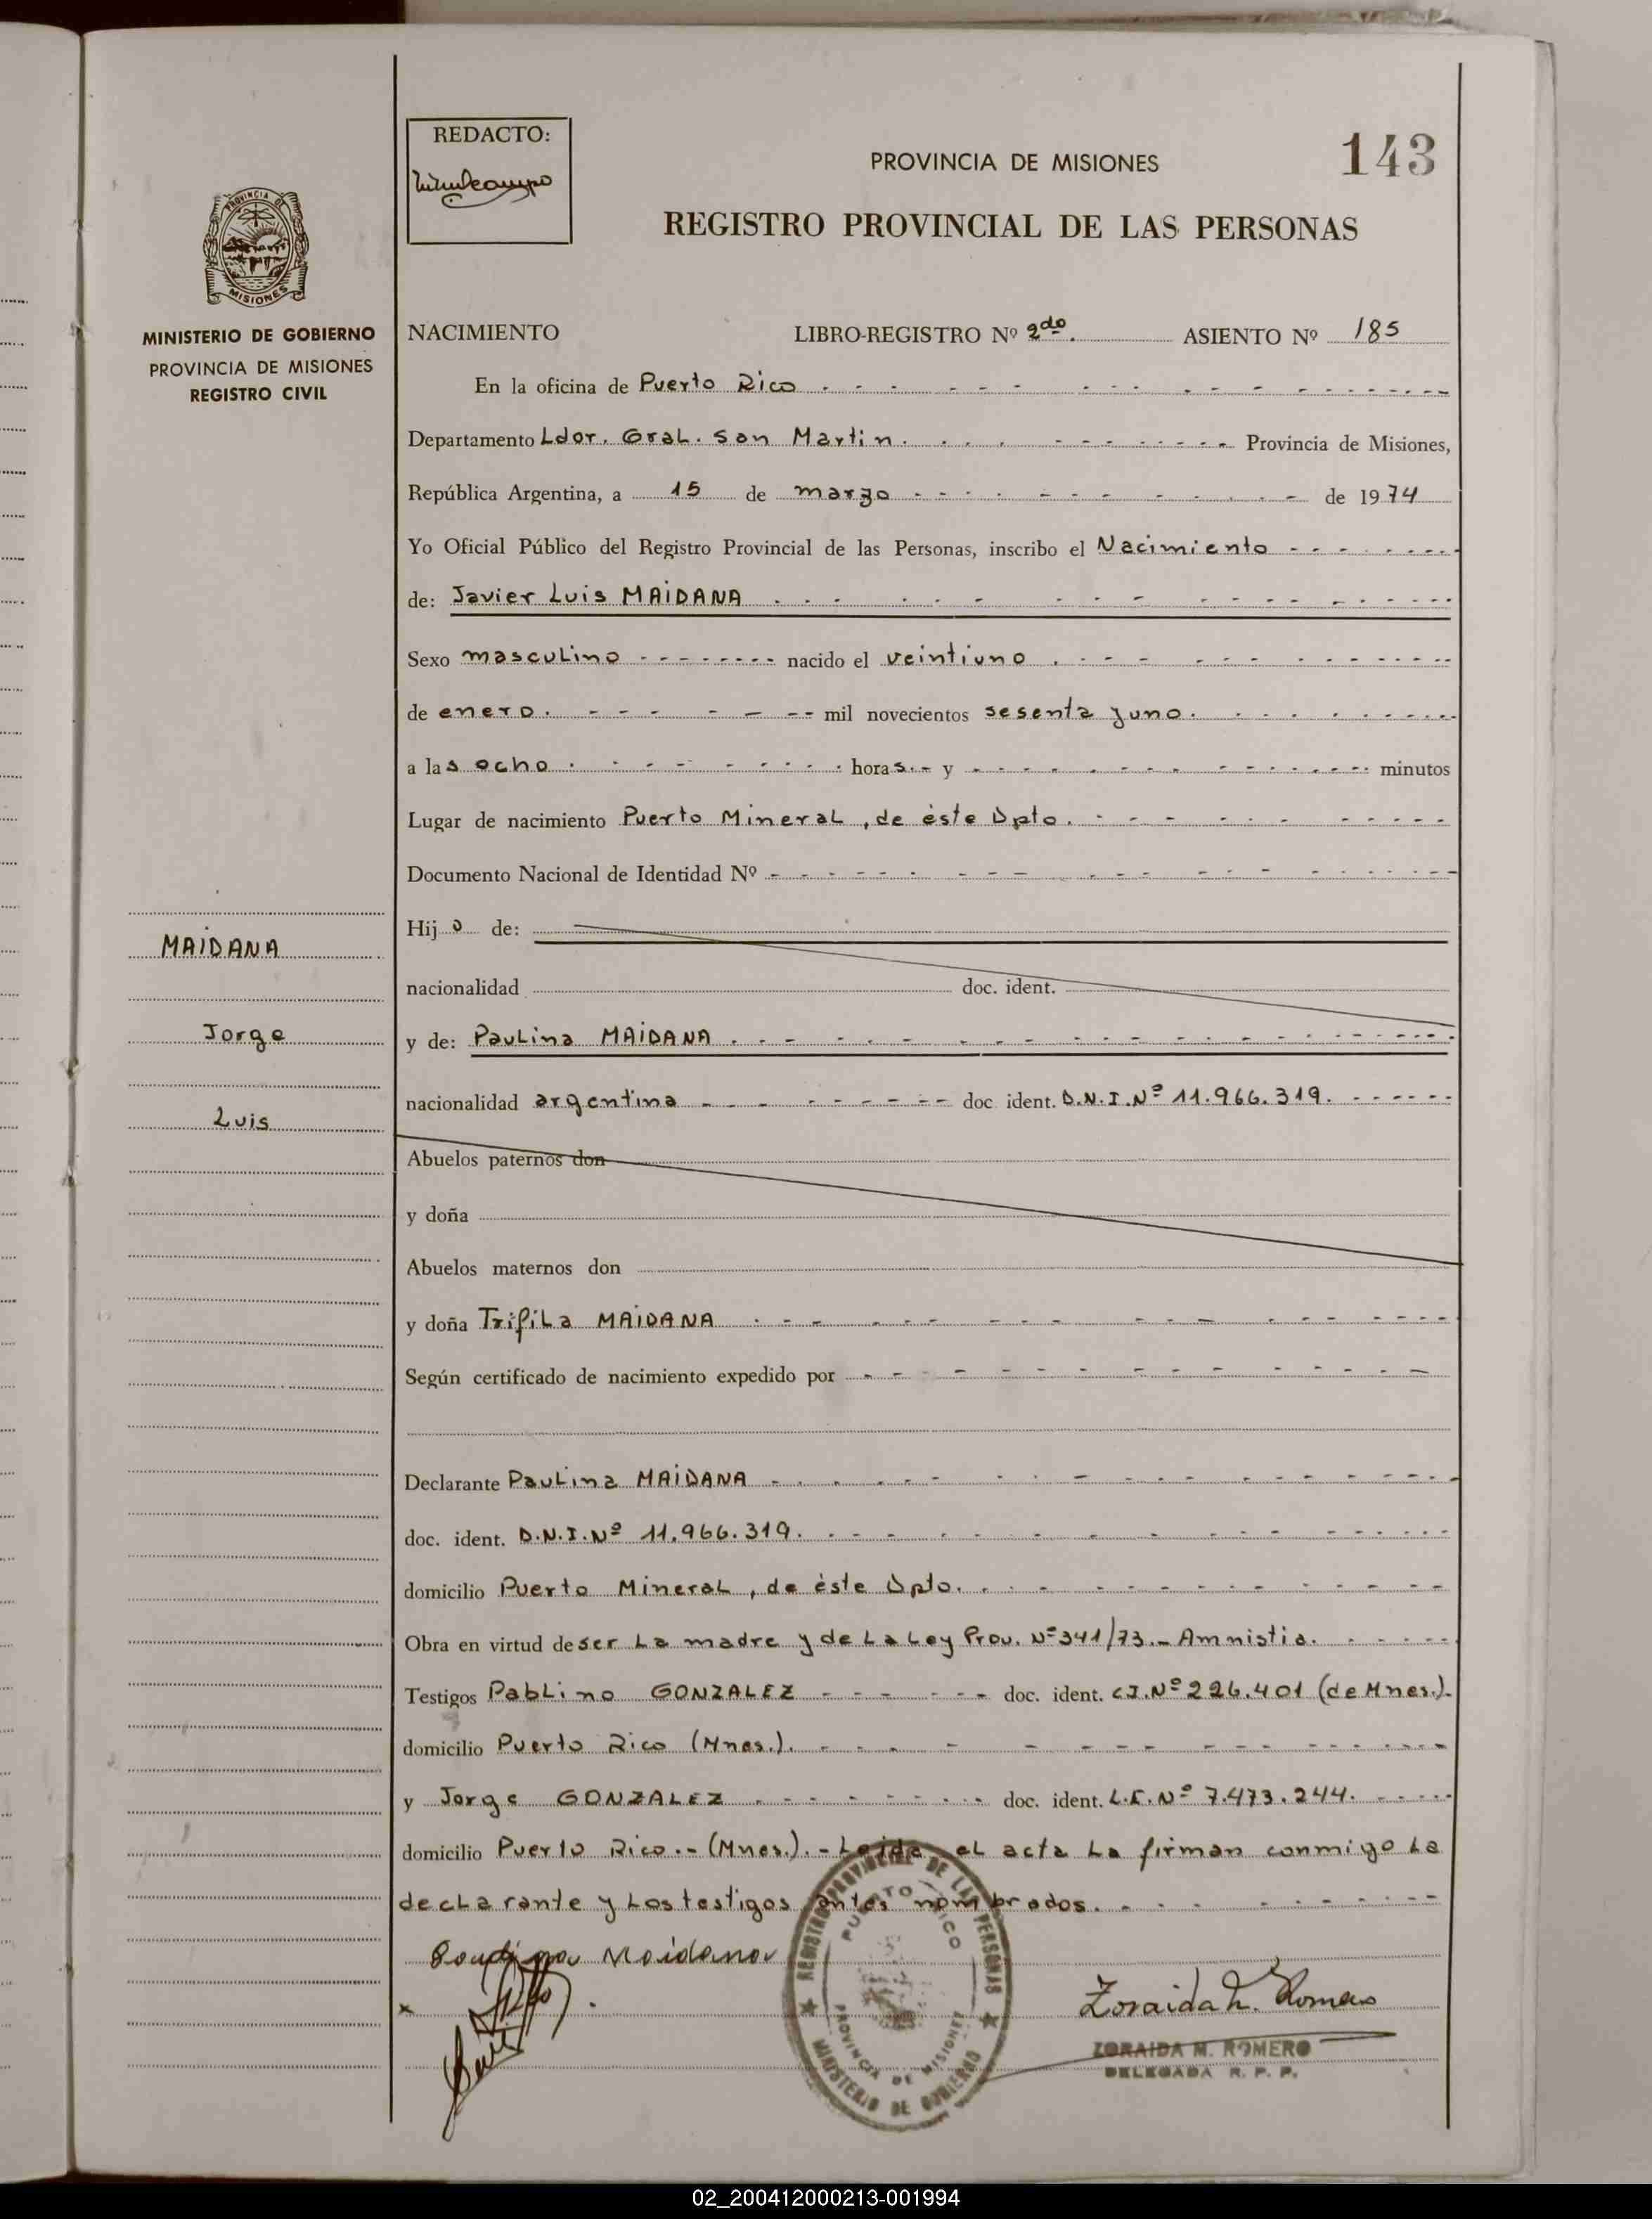 REDACTO:
PROVINCIA DE MISIONES
143
REGISTRO PROVINCIAL DE LAS PERSONAS
PROVINCIA DE
MISIONES
MINISTERIO DE GOBIERNO
PROVINCIA DE MISIONES
REGISTRO CIVIL
MAIDANA
Jorge
Luis
NACIMIENTO LIBRO-REGISTRO Nº 2do. ASIENTO Nº 185
En la oficina de Puerto Rico
Departamento Ldor. Gral. San Martin. Provincia de Misiones,
República Argentina, a 15 de marzo de 1974
Yo Oficial Público del Registro Provincial de las Personas, inscribo el Nacimiento
de: Javier Luis MAIDANA
Sexo masculino nacido el veintiuno
de enero. mil novecientos sesenta y uno.
a las ocho horas.- y minutos
Lugar de nacimiento Puerto Mineral, de éste Dpto.
Documento Nacional de Identidad Nº
Hijo de:
nacionalidad doc. ident.
y de: Paulina MAIDANA
nacionalidad argentina doc ident. D.N.I.Nº 11.966.319.
Abuelos paternos don
y doña
Abuelos maternos don
y doña Trifila MAIDANA
Según certificado de nacimiento expedido por
Declarante Paulina MAIDANA
doc. ident. D.N.I.Nº 11.966.319.
domicilio Puerto Mineral, de éste Dpto.
Obra en virtud de ser la madre y de la Ley Prov. Nº 341/73.- Amnistia.
Testigos Pablino GONZALEZ doc. ident. C.I.Nº 226.401 (de Mnes.).
domicilio Puerto Rico (Mnes.).
y Jorge GONZALEZ doc. ident. L.E.Nº 7.473.244.
domicilio Puerto Rico.- (Mnes.).- Leida el acta la firman conmigo la
declarante y los testigos antes nombrados.
Maidana
Zoraida M. Romero
ZORAIDA M. ROMERO
DELEGADA R. P. P.
REGISTRO PROVINCIAL DE LAS PERSONAS
PUERTO RICO
PROVINCIA DE MISIONES
MINISTERIO DE GOBIERNO
02_200412000213-001994